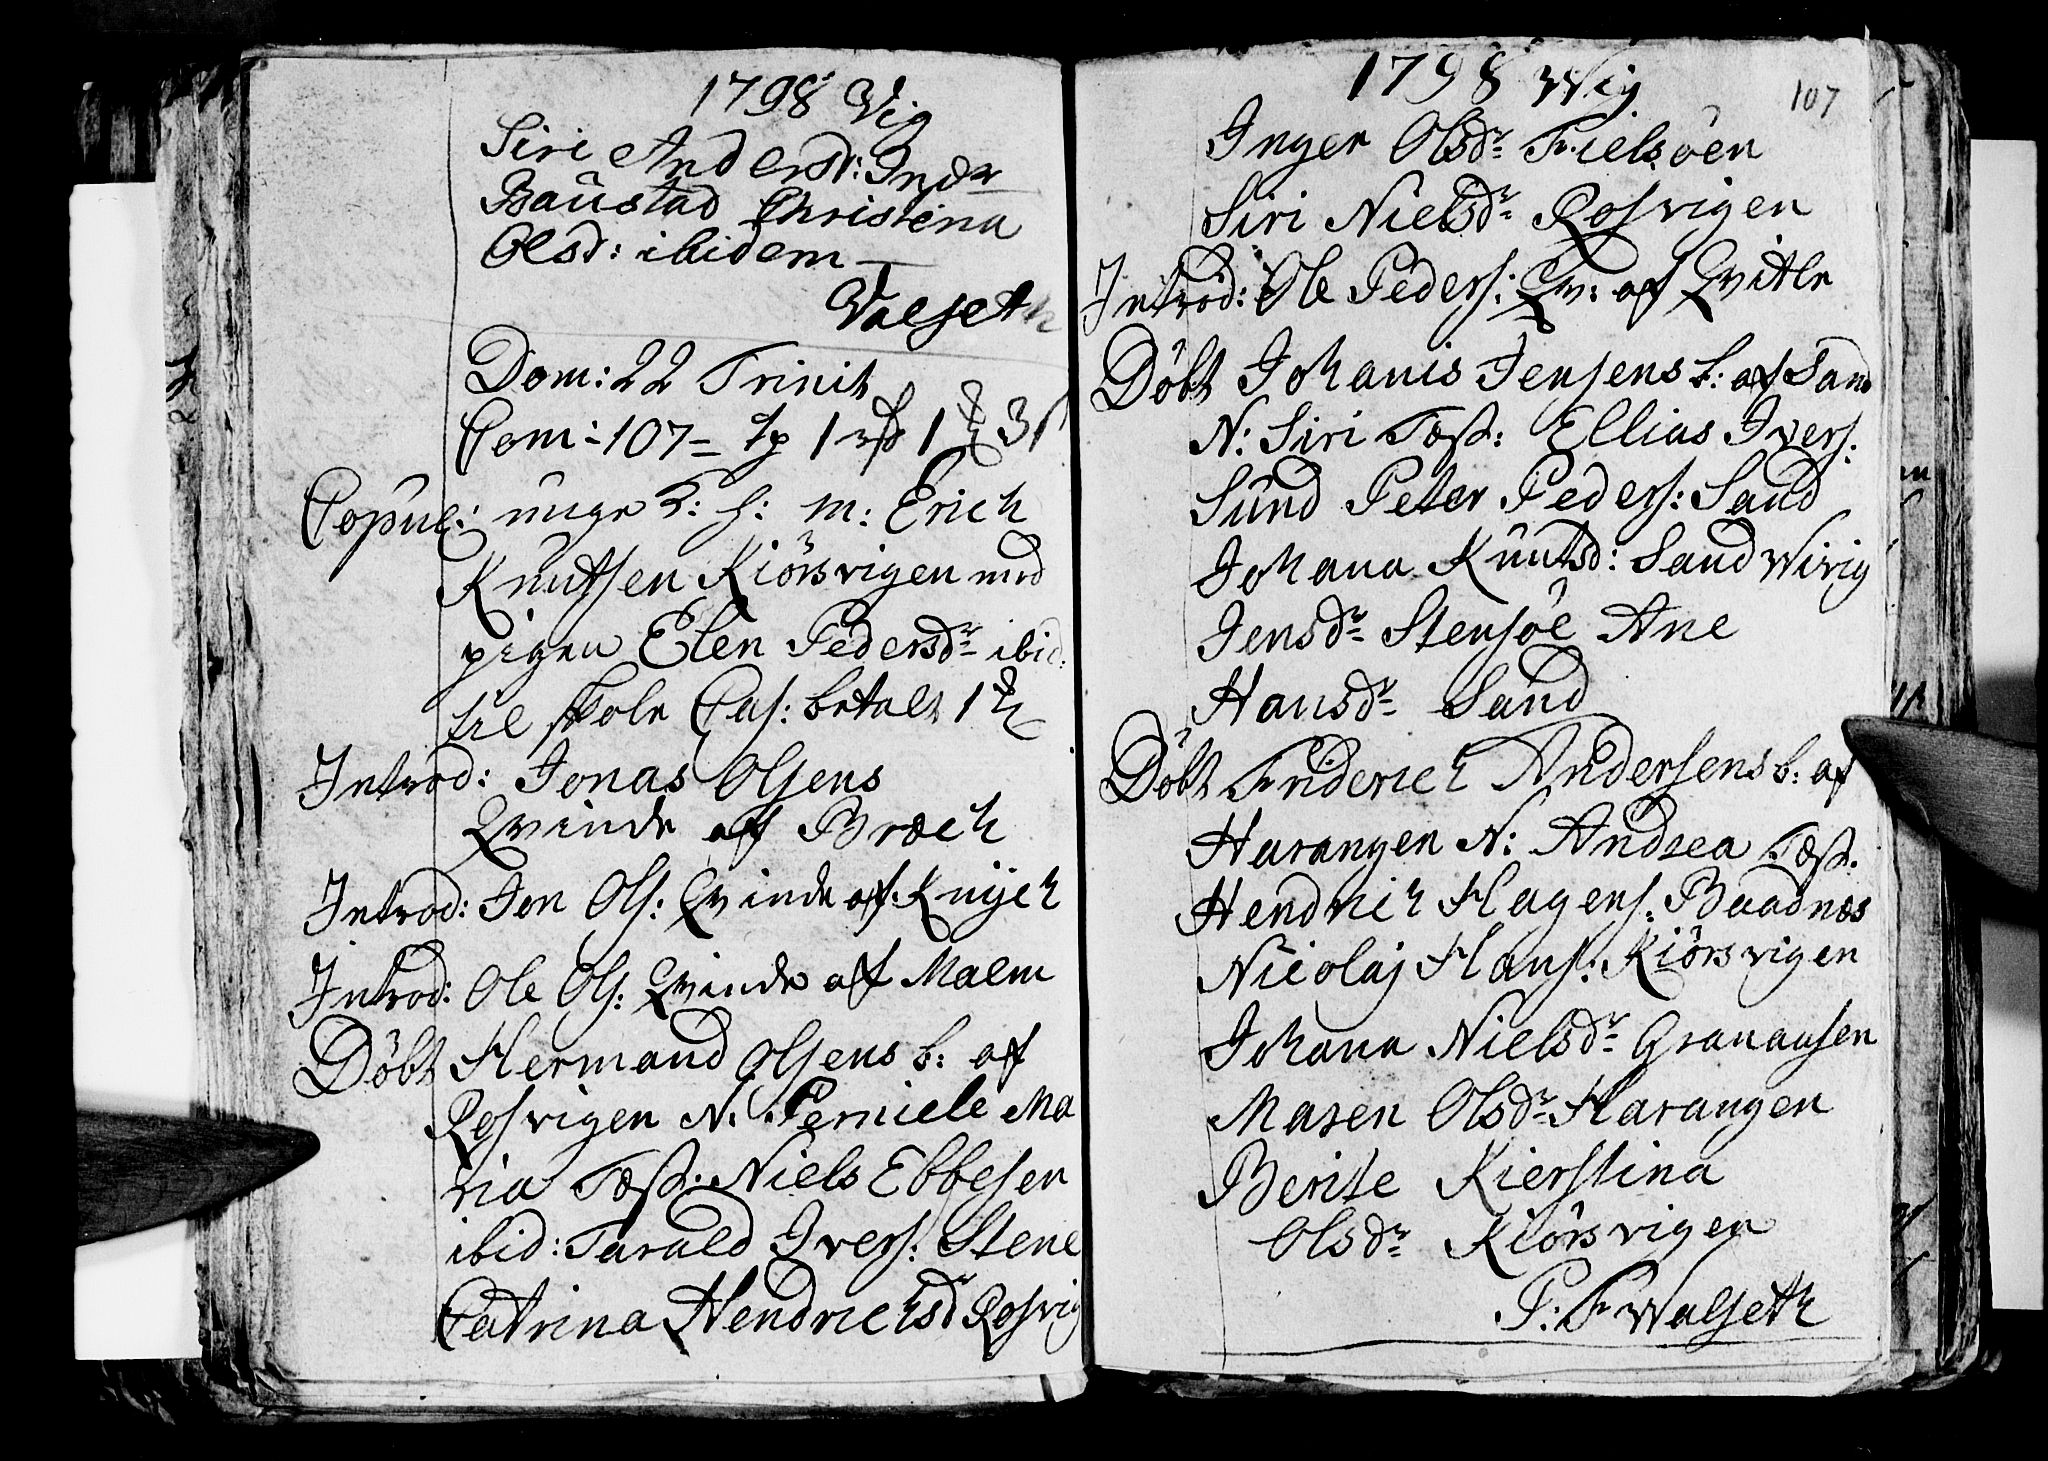 1798 Vig
Siri Andersd: Indr
Baüstad Christina
Olsd: ibidem
Valseth
Dom: 22 Trinit
Com: 107
Copul: unge K: h: m: Erich
Knütsen Kiörsvigen med
pigen Elen Pedersdr ibid:
til skole Cas: betalt 1
Introd: Jonas Olsens
Qvinde af Bræch
Introd: Jon Ols: Qvinde af
Introd: Ole Ols: Qvinde af Malm
Döbt Hermand Olsens b: af
Rosvigen N: Perniele Ma
ria Test: Niels Ebbesen
ibid: Tarald Ivers: Stene
Catrina Hendrichsd Rosvig
1798 Wig
107
Inger Olsdr Trielsöen
Siri Nielsdr Rosvigen
Introd: Ole Peders: Qv: af Qvitle
Döbt Johanis Jensens b: af Sand
N: Siri Test: Ellias Ivers:
Sünd Peter Peders: Sand
Johana Knütsd: Sandwivig
Jensdr Stensöe Ane
Hansdr Sand
Döbt Friderich Andersens b: af
Harangen N: Andrea Test:
Hendrich Hagens: Baadnæs
Nicolaj Hans: Kiörsvigen
Johana Nielsdr Granausen
Maren Olsdr Harangen
Berite Kierstina
Olsdr Kiörsvigen
P: F Walseth